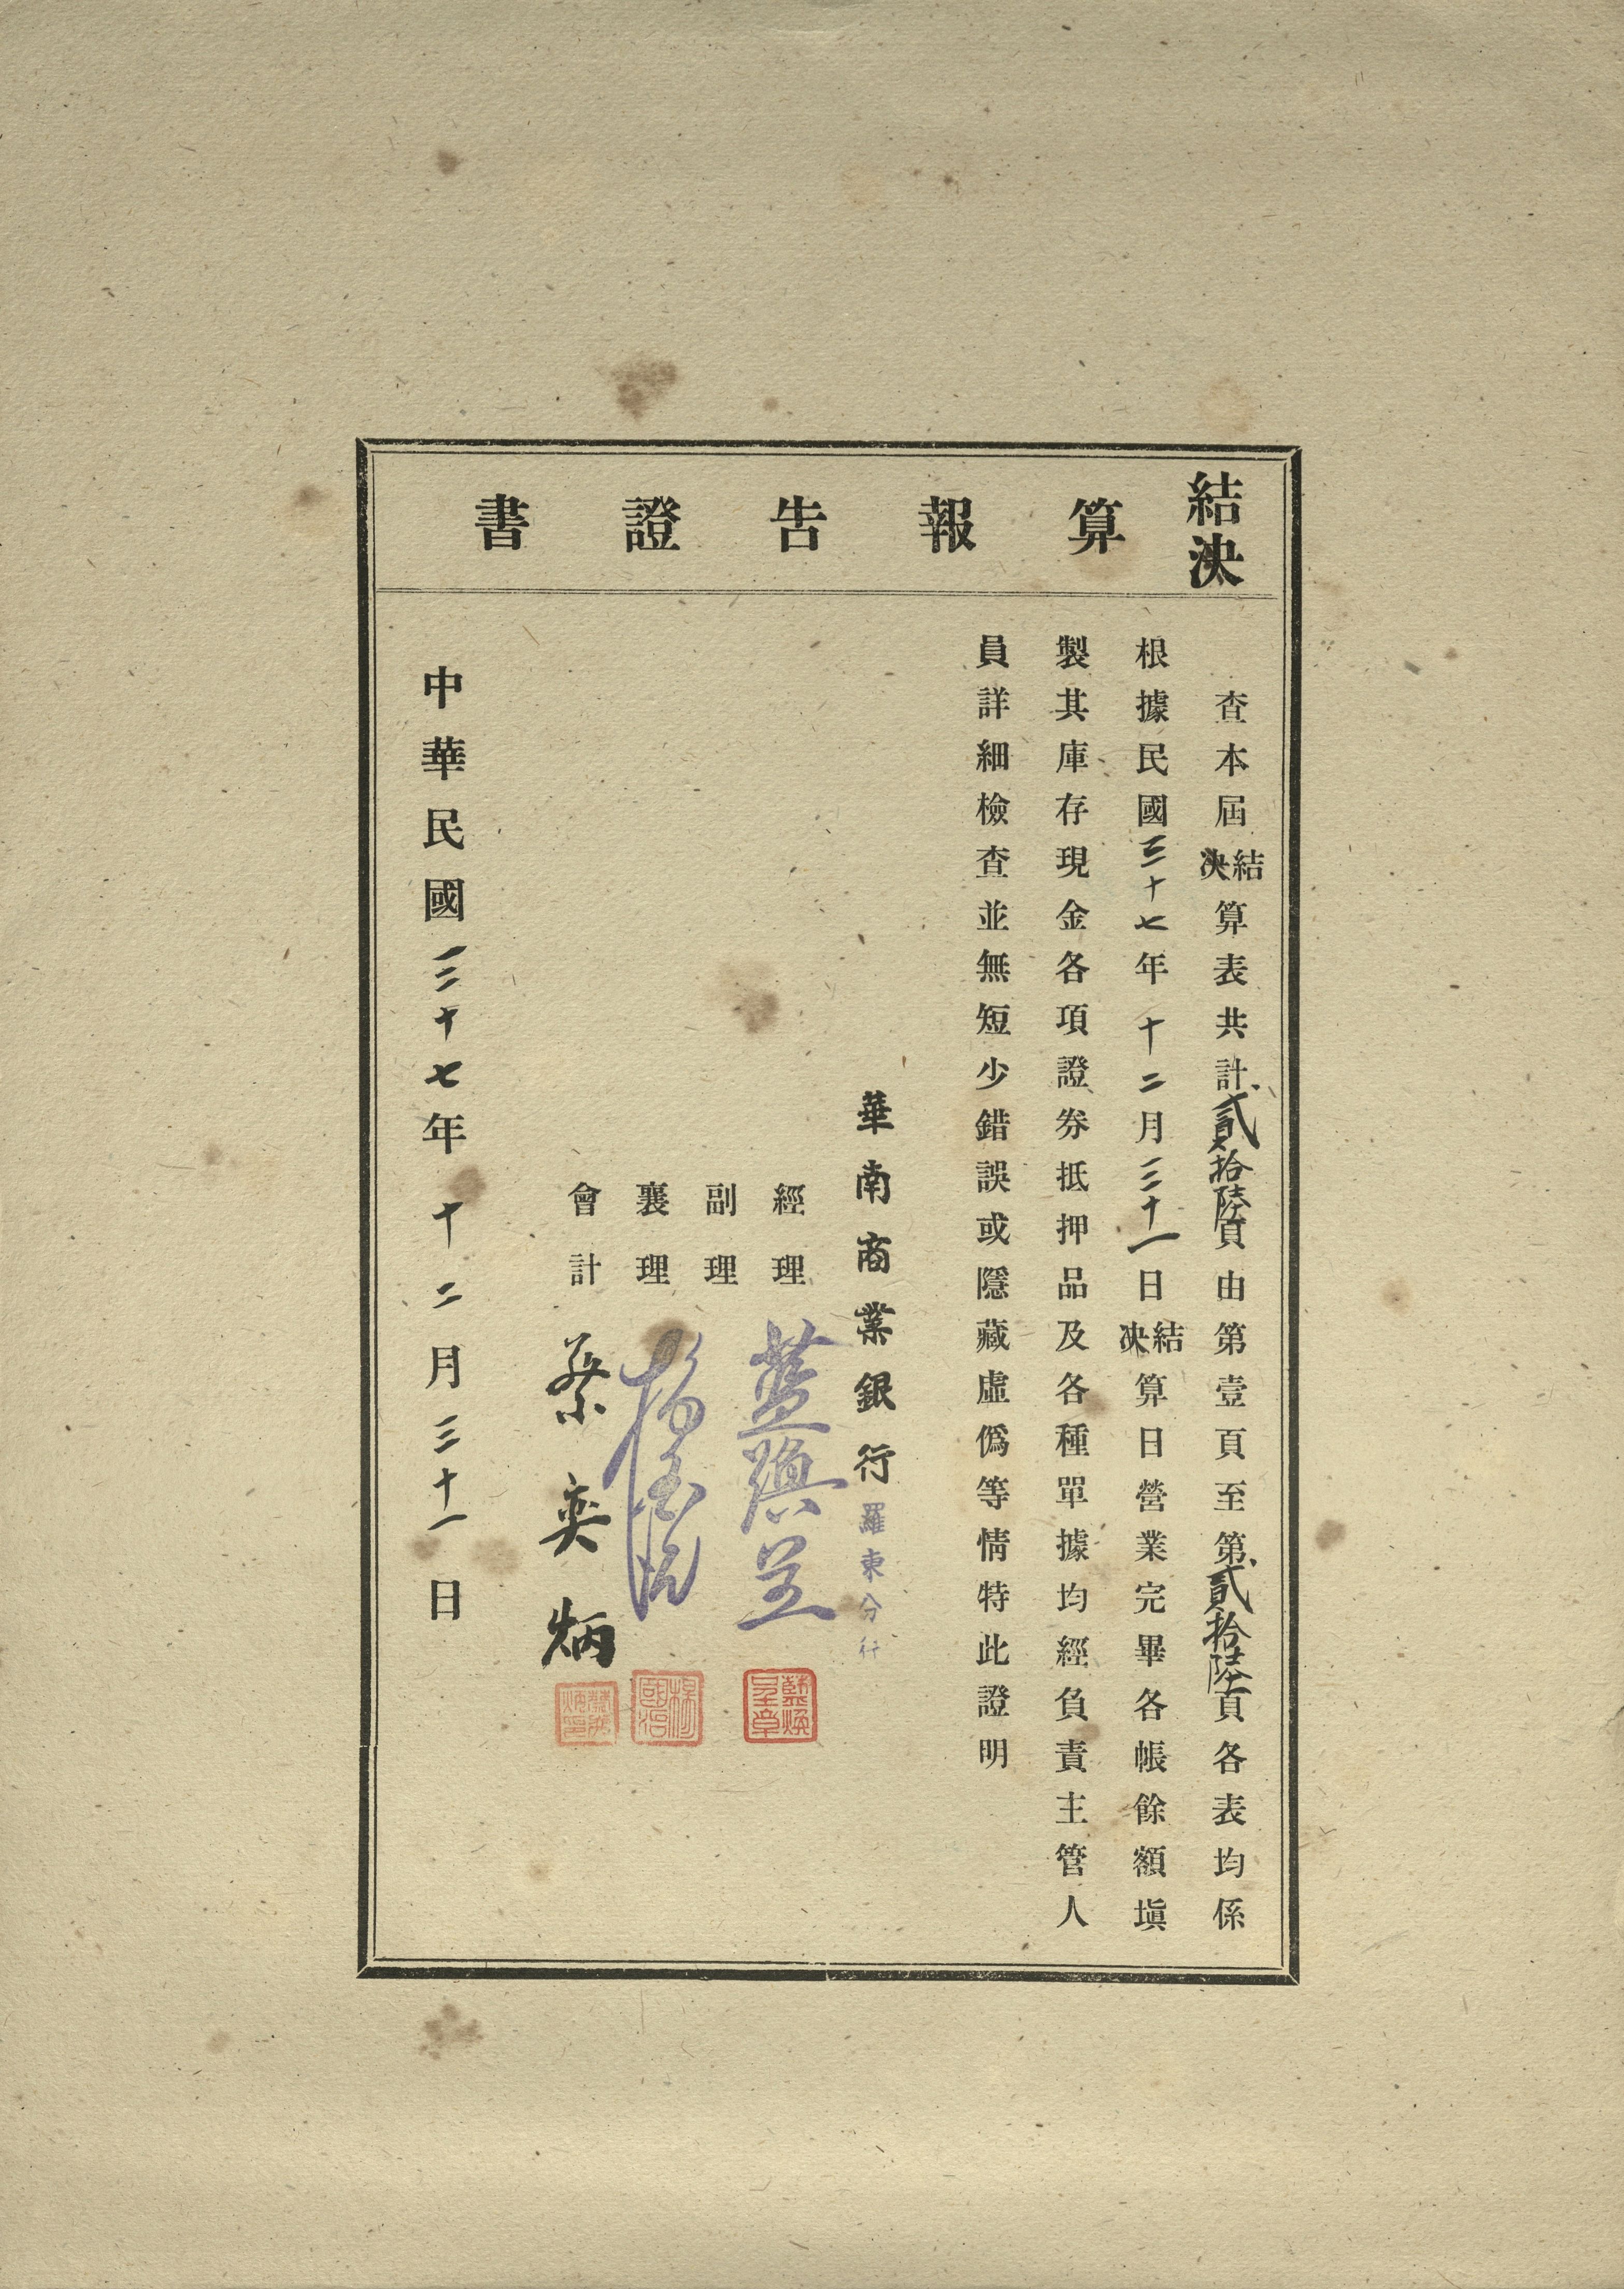 結決算報告證書
查本屆結決算表共計貳拾陸頁由第壹頁至第貳拾陸頁各表均係
根據民國三十七年十二月三十一日結決算日營業完畢各帳餘額塡
製其庫存現金各項證券抵押品及各種單據均經負責主管人
員詳細檢查並無短少錯誤或隱藏虛僞等情特此證明
華南商業銀行羅東分行
經理 藍煥呈
副理
襄理 楊
會計 蔡奕炳
中華民國三十七年十二月三十一日